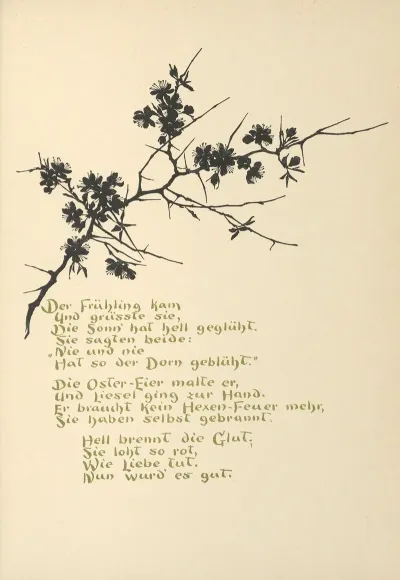 Der Frühling kam
Und grüsste sie,
Die Sonn' hat hell geglüht.
Sie sagten beide:
„Nie und nie
Hat so der Dorn geblüht."
Die Oster-Eier malte er,
Und Liesel ging zur Hand.
Er braucht kein Hexen-Feuer mehr,
Sie haben selbst gebrannt.
Hell brennt die Glut;
Sie loht so rot,
Wie Liebe tut.
Nun wurd' es gut.